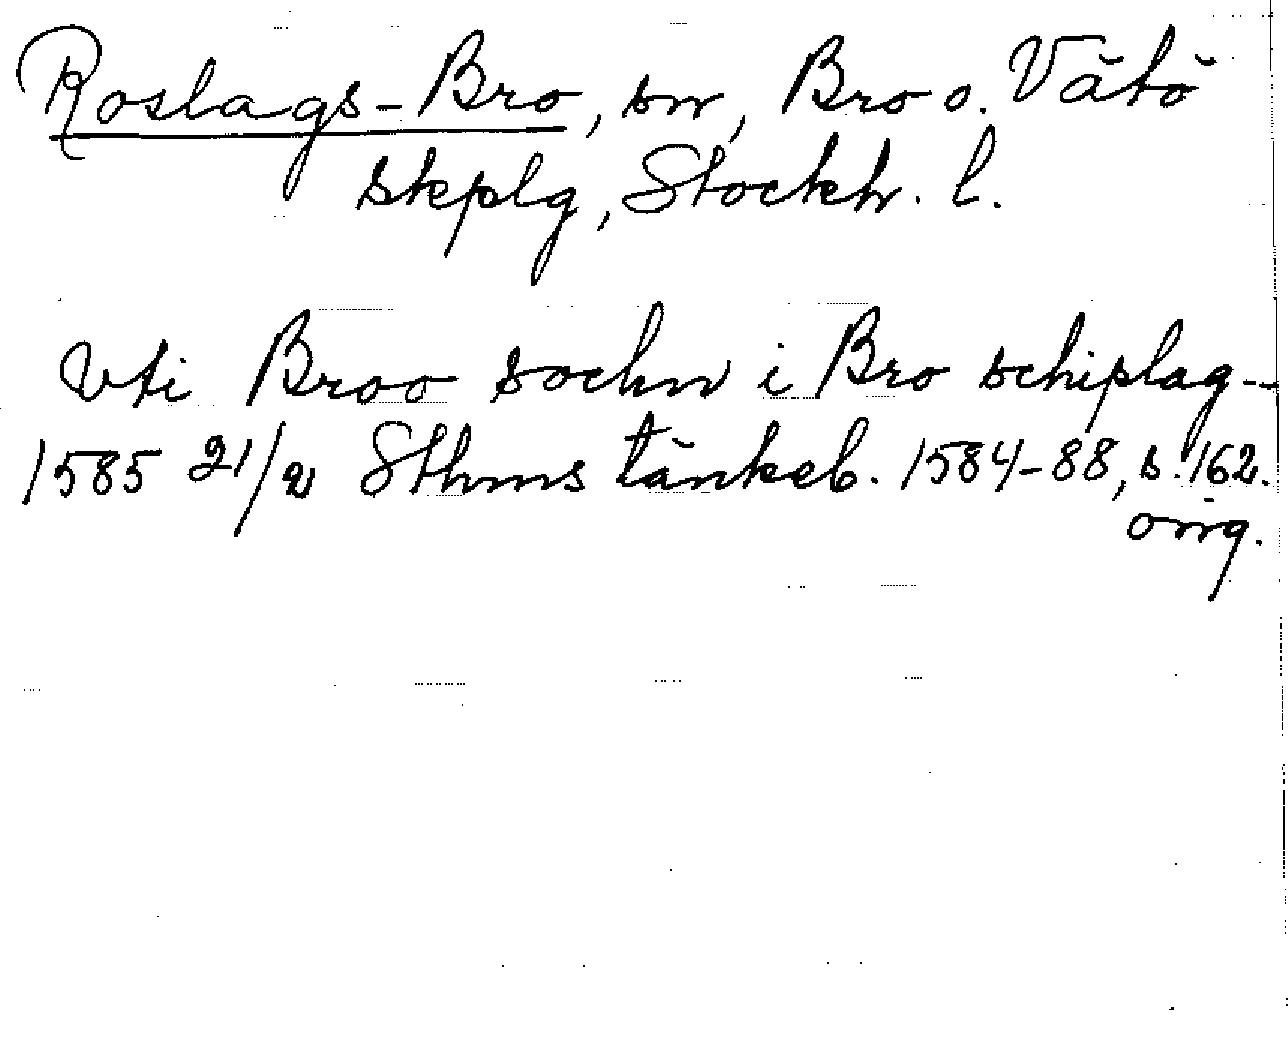 Roslags-Bro, sn, Bro o. Vätö
skplg, Stockh. l.
Vti Broo sochn i Bro schiplag--
1585 21/2 Sthms tänkeb. 1584-88, s. 162.
orig.